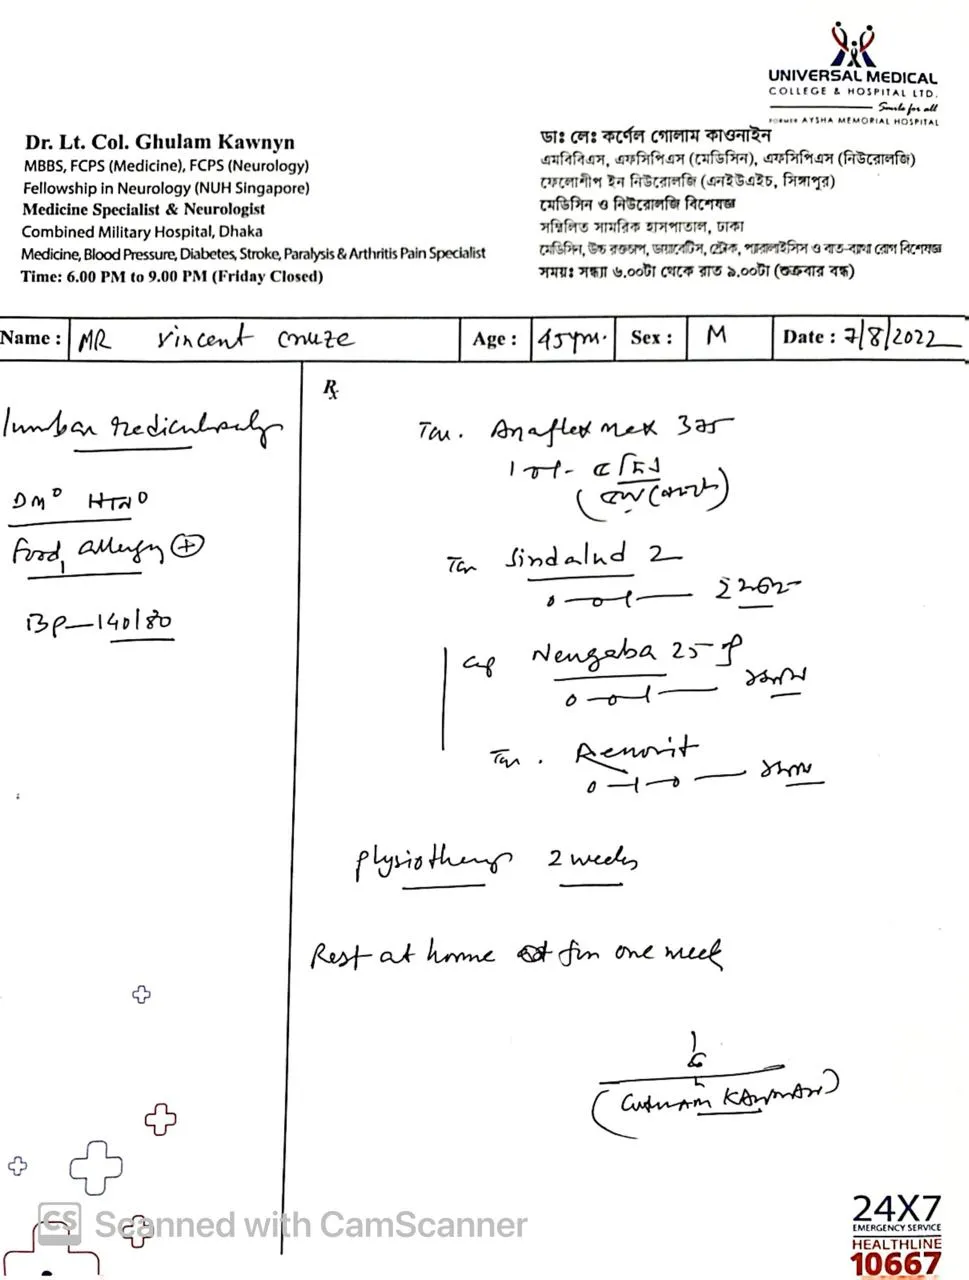 UNIVERSAL MEDICAL
COLLEGE & HOSPITAL LTD.
Smile for all
FORMER AYSHA MEMORIAL HOSPITAL
Dr. Lt. Col. Ghulam Kawnyn
MBBS, FCPS (Medicine), FCPS (Neurology)
Fellowship in Neurology (NUH Singapore)
Medicine Specialist & Neurologist
Combined Military Hospital, Dhaka
Medicine, Blood Pressure, Diabetes, Stroke, Paralysis & Arthritis Pain Specialist
Time: 6.00 PM to 9.00 PM (Friday Closed)
ডাঃ লেঃ কর্ণেল গোলাম কাওনাইন
এমবিবিএস, এফসিপিএস (মেডিসিন), এফসিপিএস (নিউরোলজি)
ফেলোশীপ ইন নিউরোলজি (এনইউএইচ, সিঙ্গাপুর)
মেডিসিন ও নিউরোলজি বিশেষজ্ঞ
সম্মিলিত সামরিক হাসপাতাল, ঢাকা
মেডিসিন, উচ্চ রক্তচাপ, ডায়াবেটিস, স্ট্রোক, প্যারালাইসিস ও বাত-ব্যথা রোগ বিশেষজ্ঞ
সময়ঃ সন্ধ্যা ৬.০০টা থেকে রাত ৯.০০টা (শুক্রবার বন্ধ)
Name : MR Vincent Age : 45 Sex : M Date : 7/8/2022
lumbar
DM⁰ HTN⁰
Food allergy +
BP—140/80
Rx
Anaflex max 375
Sindalud 2
0—0—1—
Cap Nengaba 25
0—0—1—
Renovit
0—1—0—
Physiotherapy 2 weeks
Rest at home for one week
24X7
EMERGENCY SERVICE
HEALTHLINE
10667
CS Scanned with CamScanner